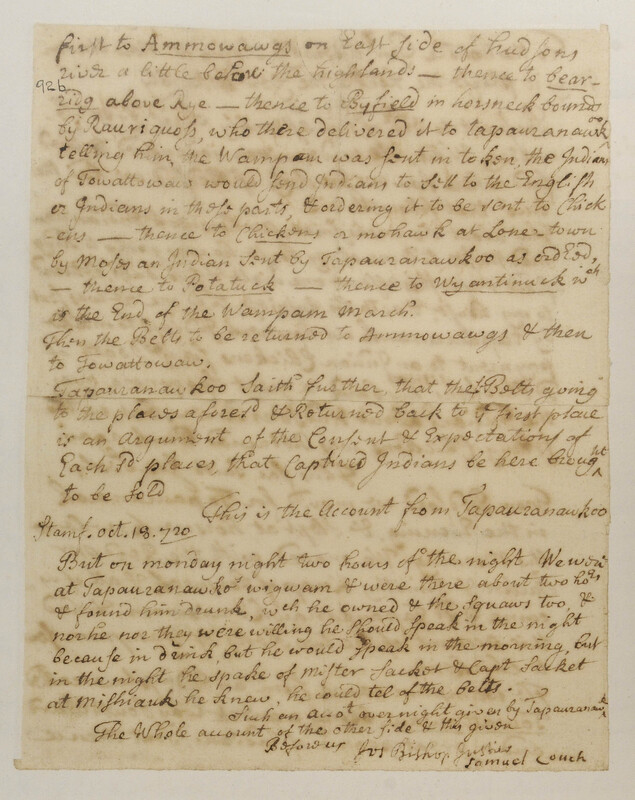 first to Ammowawgs on East side of hudsons
92b
river a little before the highlands — thence to bear-
ridg above Rye — thence to Byfield in horsneck bounds
by Rauriquoss, who there delivered it to tapauranawkoo
telling him, the Wampam was sent in token, the Indians
of Towattowaw would send Indians to sell to the English
or Indians in these parts, & ordering it to be sent to Chick
-ens — thence to Chickens or mohawk at Loner town
by Moses an Indian sent by Tapauranawkoo as ordred,
— thence to Potatuck — thence to Wyantinuck wch
is the End of the Wampam March.
Then the Belts to be returned to Ammowawgs & then
to Towattowaw.
Tapauranawkoo saith further, that the Belts going
to the places aforesd & Returned back to ye first place
is an Argument of the Consent & Expectations of
Each sd places, that Captived Indians be here brought
to be sold
This is the Account from Tapauranawkoo
Stamf. Oct. 18. 720
But on monday night two hours of the night We were
at Tapauranawkos wigwam & were there about two hors
& found him drunk, wch he owned & the squaws too, &
nor he nor they were willing he should speak in the night
because in drink, but he would speak in the morning, but
in the night he spake of Mister Sacket & Capt Sacket
at Mishiauk he knew, he could tel of the belts.
Such an acot over night given by Tapauranawk
The Whole account of the other side & this given
Before us Jos Bishop Justies
Samuel Couch